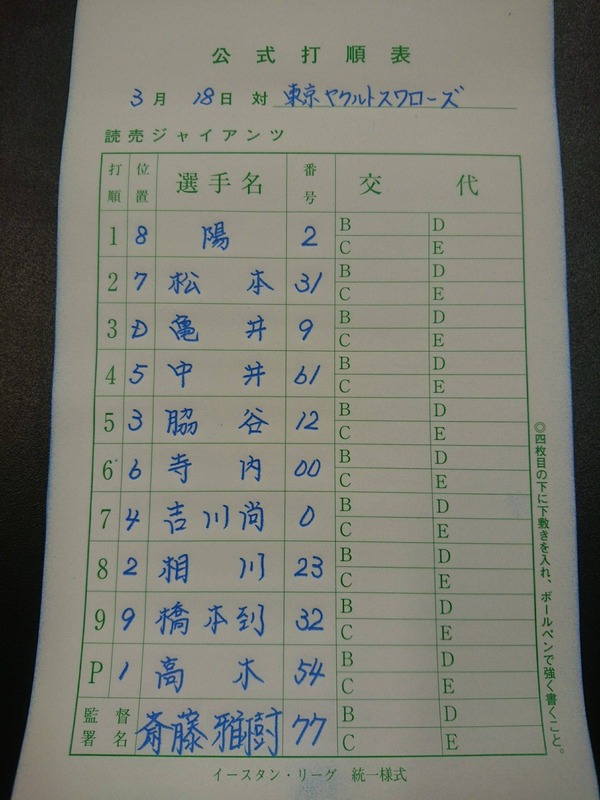 公式打順表
3月 18日 対 東京ヤクルトスワローズ
読売ジャイアンツ
打順 位置 選手名 番号 交代
1 8 陽 2 B D
C E
2 7 松本 31 B D
C E
3 D 亀井 9 B D
C E
4 5 中井 61 B D
C E
5 3 脇谷 12 B D
C E
6 6 寺内 00 B D
C E
7 4 吉川尚 0 B D
C E
8 2 相川 23 B D
C E
9 9 橋本到 32 B D
C E
P 1 高木 54 B D
C E
監督署名 斎藤雅樹 77 B D
C E
イースタン・リーグ 統一様式
◎四枚目の下に下敷きを入れ、ボールペンで強く書くこと。